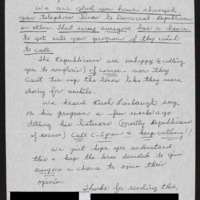 We are glad you have changed
your telephone lines to Democrat, Republican
or other. That way everyone has a chance
to get into your program if they wish
to call.
The Republicans are unhappy & calling
you to complain, of course - now they
can't tie up the lines like they were
doing for awhile.
We heard Rush Limbaugh say,
on his program a few weeks ago
telling his listeners (mostly Republicans
of course) Call C-Span & keep calling!!
We just hope you understand
this & keep the lines divided so your
everyone a chance to voice their
opinion.
Thanks for reading this,